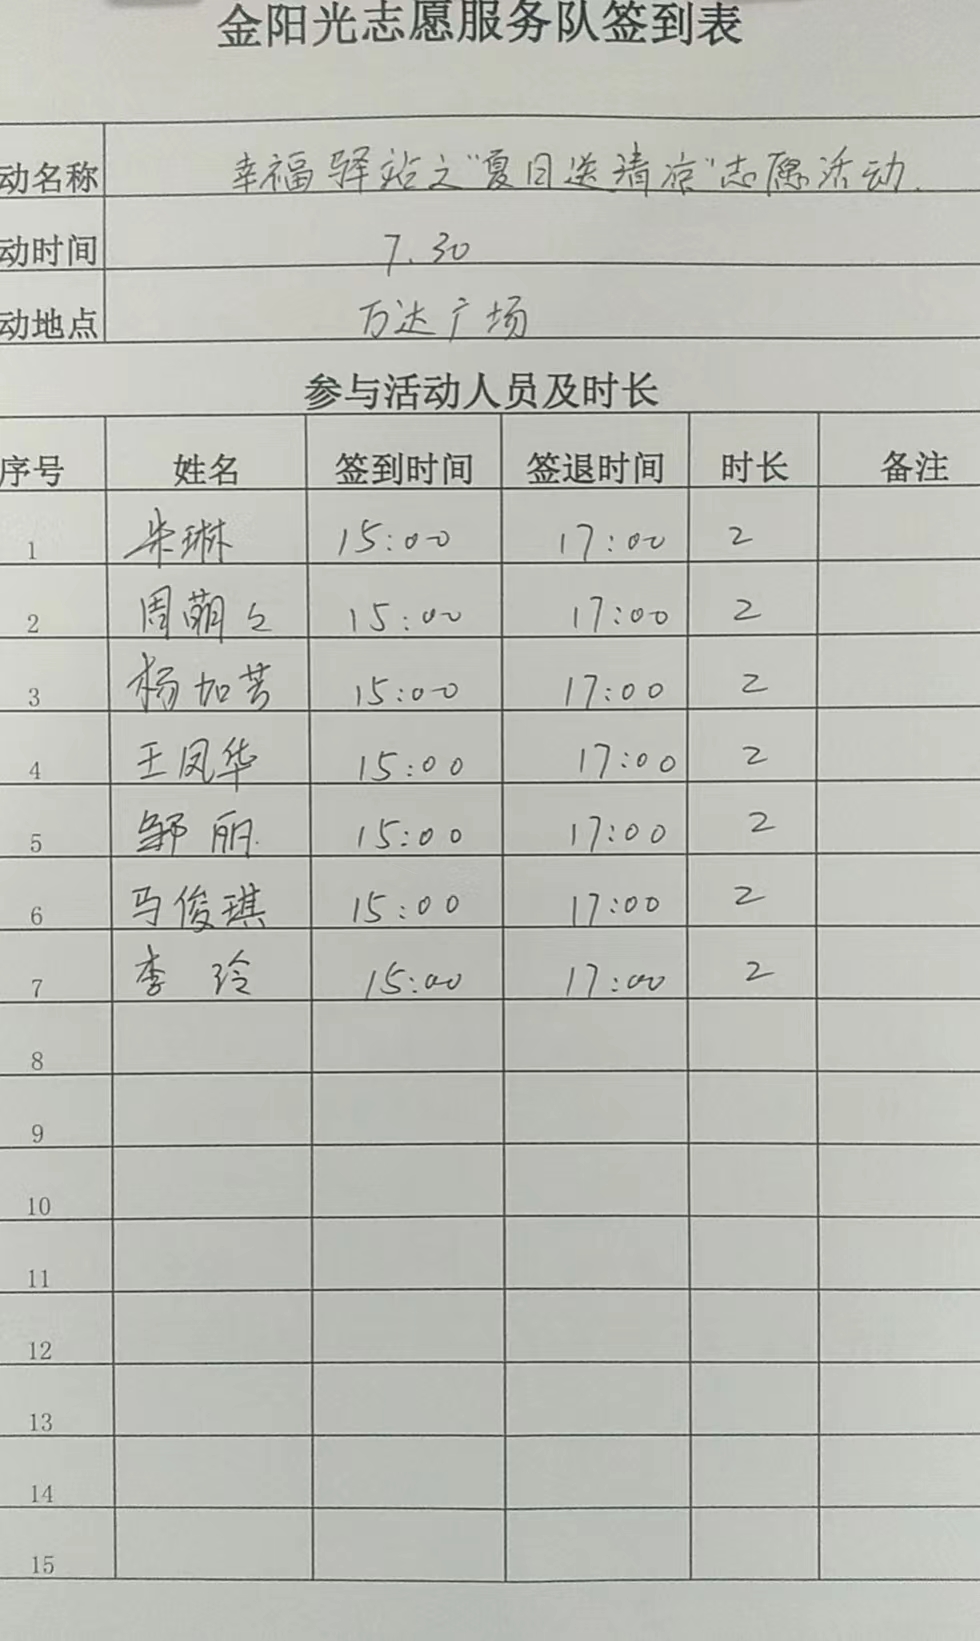 金阳光志愿服务队签到表
动名称 幸福驿站之"夏日送清凉"志愿活动.
动时间 7.30
动地点 万达广场
参与活动人员及时长
序号 姓名 签到时间 签退时间 时长 备注
1 朱琳 15:00 17:00 2
2 周萌 15:00 17:00 2
3 杨加芳 15:00 17:00 2
4 王凤华 15:00 17:00 2
5 邹丽 15:00 17:00 2
6 马俊琪 15:00 17:00 2
7 李玲 15:00 17:00 2
8
9
10
11
12
13
14
15